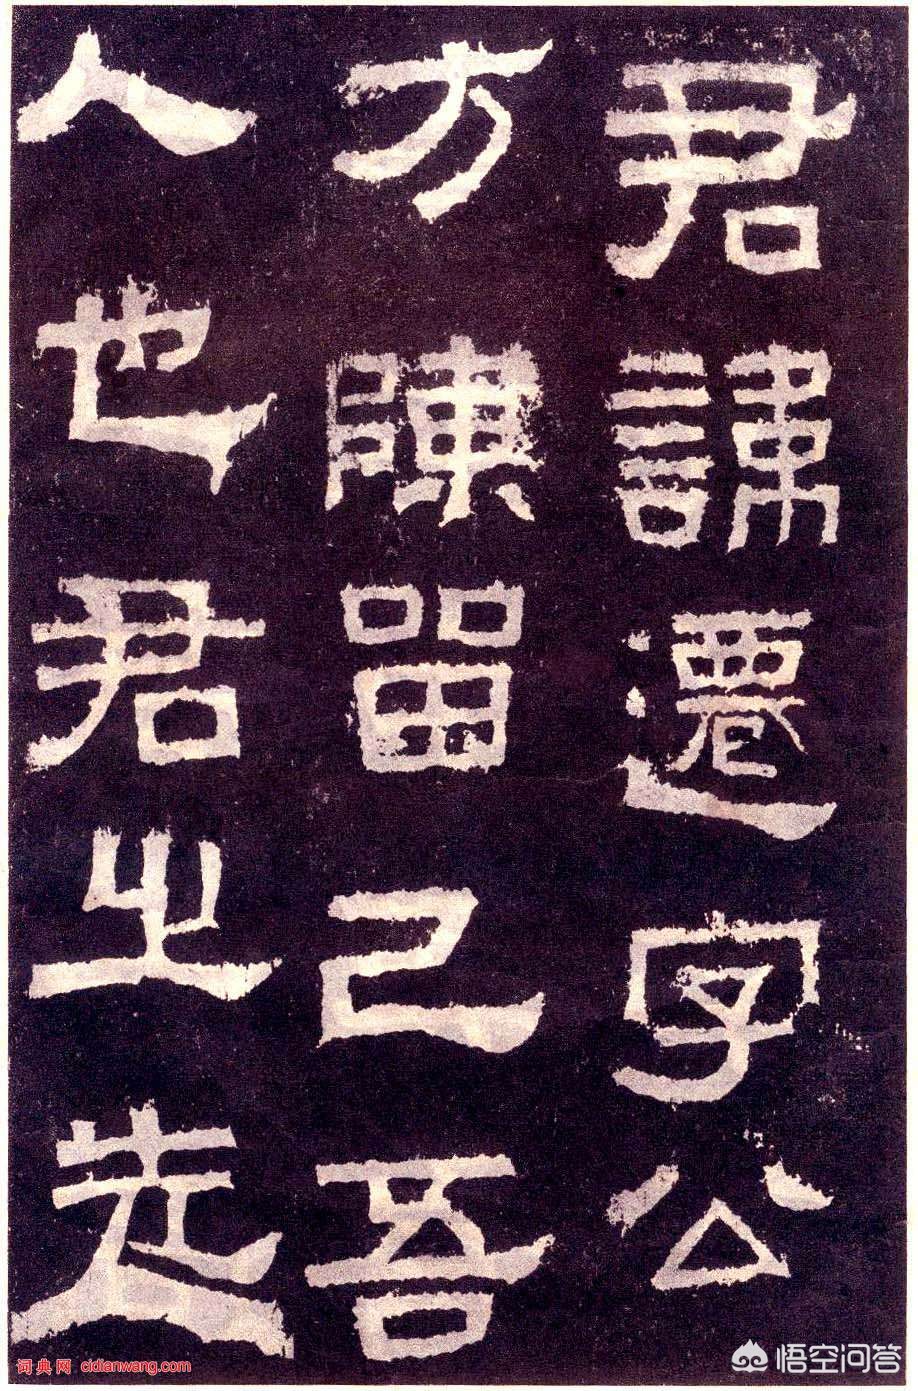 君諱遷字公
方陳留己吾
人也君之先
词典网 cidianwang.com
悟空问答